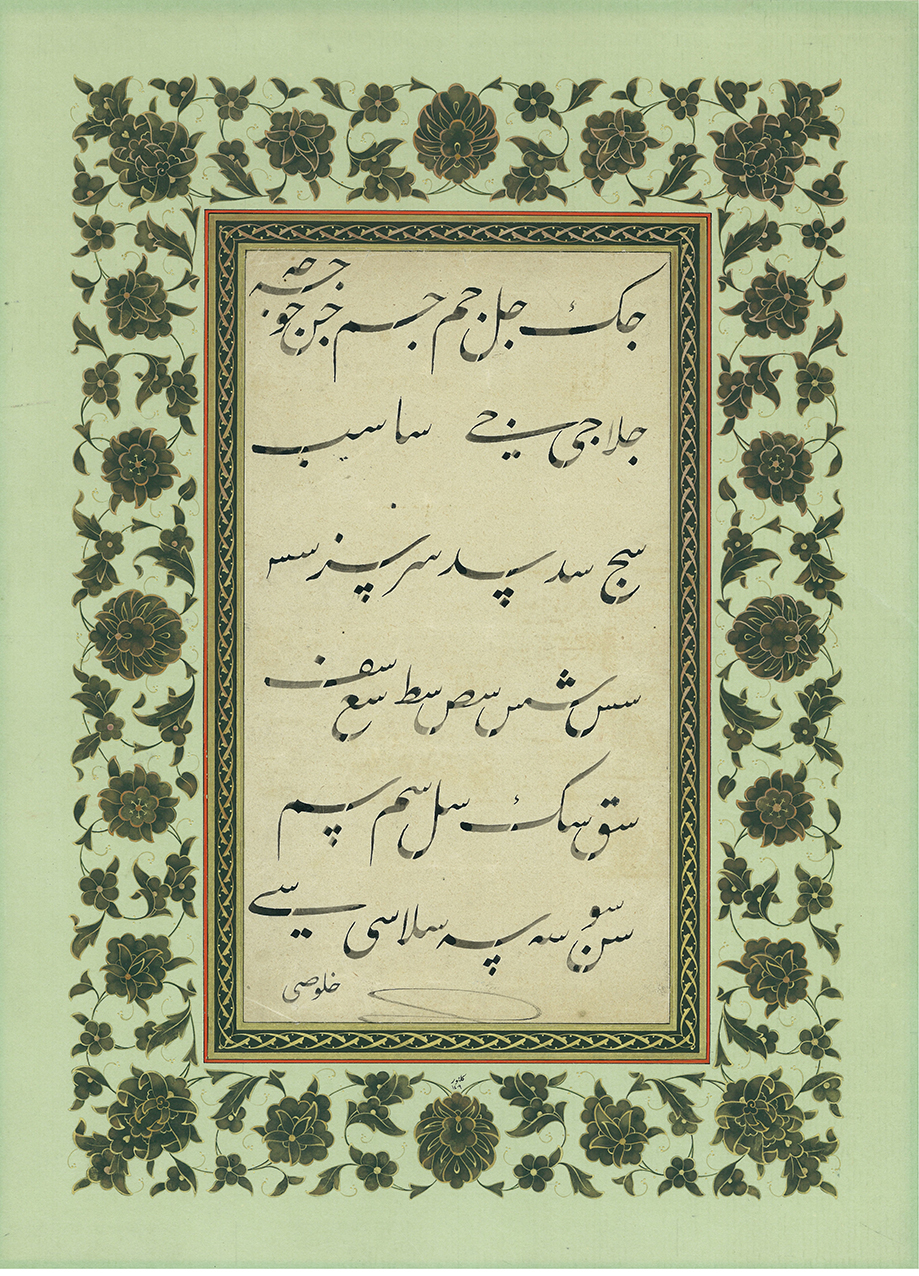 جک جل جم جسم جن جو جه
جلا جی جے سا سیب
سج سد سپد سر سپز سس
سس شمس سص سط سع سف
سق سک سل سم سپم
سن سو سه سپه سلا سی سیے
خلوصی